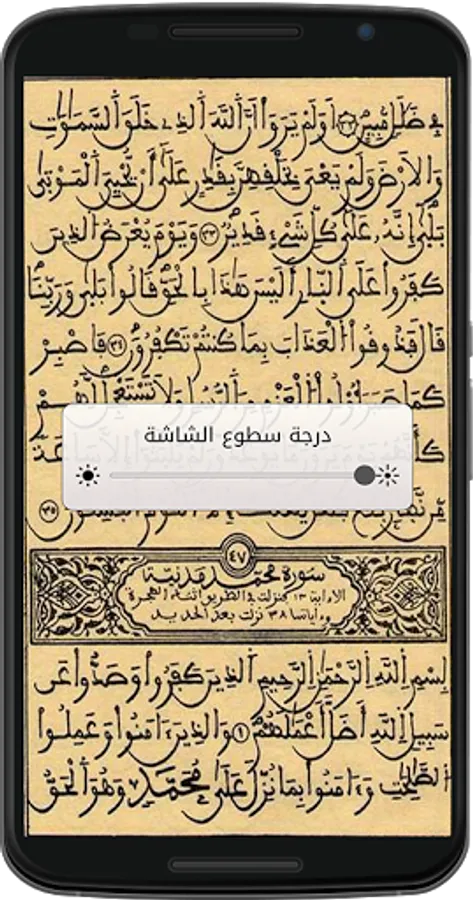 في ضلل مبين ٣٢ اولم يروا ان الله الذي خلق السموت
والارض ولم يعي بخلقهن بقدر على ان يحيي الموتى
بلى إنه على كل شيء قدير ٣٣ ويوم يعرض الذين
كفروا على النار أليس هذا بالحق قالوا بلى وربنا
قال فذوقوا العذاب بما كنتم تكفرون ٣٤ فاصبر
كما صبر أولوا العزم من الرسل ولا تستعجل لهم
درجة سطوع الشاشة
من نهار ٣٥
٤٧
سورة محمد مدنية
الا اية ١٣ فنزلت في الطريق اثناء الهجرة
وءاياتها ٣٨ نزلت بعد الحديد
بسم الله الرحمن الرحيم الذين كفروا وصدوا عن
سبيل الله أضل أعملهم ١ والذين ءامنوا وعملوا
الصلحت وءامنوا بما نزل على محمد وهو الحق